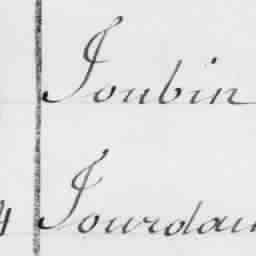 Joubin
4 Jourdan